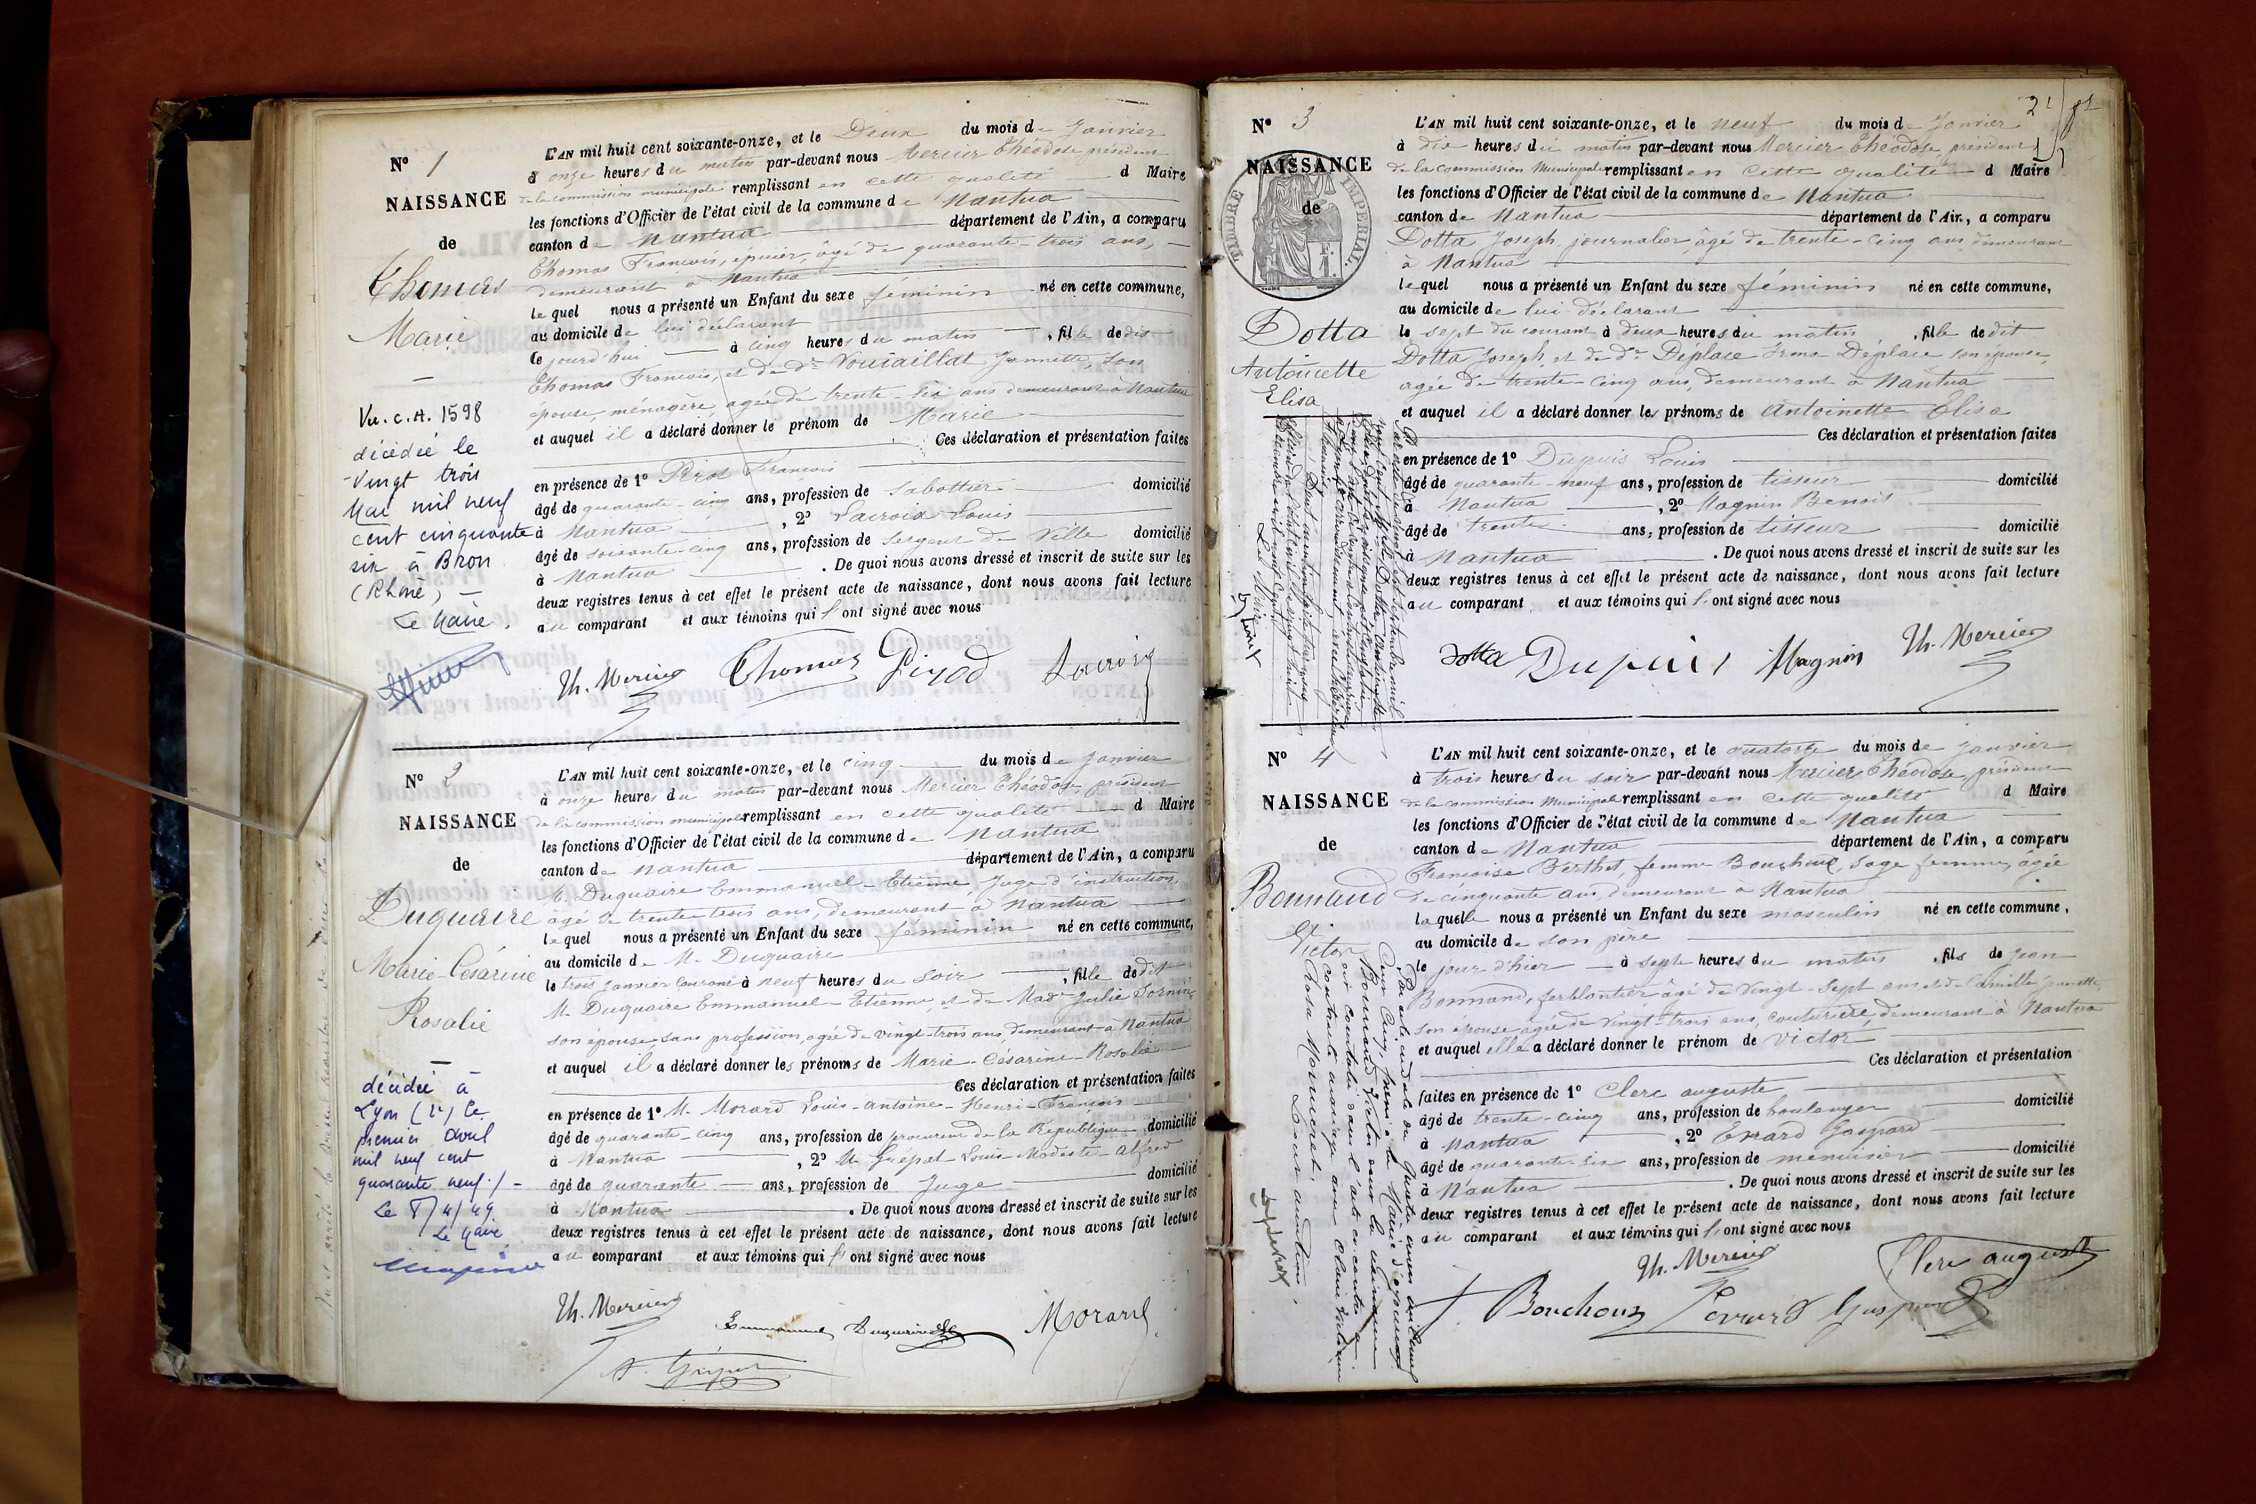 N° 1
NAISSANCE
de
Thomas
Marie
Vu. C.A. 1598
décédée le
vingt trois
Mai mil neuf
cent cinquante
six à Bron
(Rhône) —
Le Maire.
L'AN mil huit cent soixante-onze, et le Deux du mois de Janvier
à onze heures du matin par-devant nous Mercier Théodose président
de la commission municipale remplissant en cette qualité d Maire
les fonctions d'Officier de l'état civil de la commune de Nantua
canton de Nantua département de l'Ain, a comparu
Thomas François, épicier, âgé de quarante-trois ans,
demeurant à Nantua
lequel nous a présenté un Enfant du sexe féminin né en cette commune,
au domicile de lui déclarant
ce jourd'hui à cinq heures du matin, fille de dit
Thomas François, et de De Vouaillat Jannette, son
épouse, ménagère, agée de trente-six ans demeurant à Nantua
et auquel il a déclaré donner le prénom de Marie
Ces déclaration et présentation faites
en présence de 1° Pirod François
âgé de quarante-cinq ans, profession de sabottier domicilié
à Nantua, 2° Lacroix Louis
âgé de soixante-cinq ans, profession de Sergent de Ville domicilié
à Nantua. De quoi nous avons dressé et inscrit de suite sur les
deux registres tenus à cet effet le présent acte de naissance, dont nous avons fait lecture
au comparant et aux témoins qui l'ont signé avec nous
Th. Mercier Thomas Pirod Lacroix
N° 2
NAISSANCE
de
Duquaire
Marie-Césarine
Rosalie
décédée à
Lyon (2e) le
premier avril
mil neuf cent
quarante neuf./-
Le 8/4/49
Le Maire
L'AN mil huit cent soixante-onze, et le cinq du mois de Janvier
à onze heures du matin par-devant nous Mercier Théodose, président
de la commission municipale remplissant en cette qualité d Maire
les fonctions d'Officier de l'état civil de la commune de Nantua
canton de Nantua département de l'Ain, a comparu
M. Duquaire Emmanuel-Etienne, Juge d'instruction,
âgé de trente-trois ans, demeurant à Nantua
lequel nous a présenté un Enfant du sexe féminin né en cette commune,
au domicile de M. Duquaire
le trois Janvier courant à neuf heures du soir, fille de dit
M. Duquaire Emmanuel-Etienne, et de Made Julie Sornin,
son épouse sans profession, agée de vingt-trois ans, demeurant à Nantua
et auquel il a déclaré donner les prénoms de Marie-Césarine-Rosalie
Ces déclaration et présentation faites
en présence de 1° M. Morard Louis-Antoine-Henri-François
âgé de quarante-cinq ans, profession de procureur de la République domicilié
à Nantua, 2° M. Grépat Louis-Modeste-Alfred
âgé de quarante ans, profession de Juge domicilié
à Nantua. De quoi nous avons dressé et inscrit de suite sur les
deux registres tenus à cet effet le présent acte de naissance, dont nous avons fait lecture
au comparant et aux témoins qui l'ont signé avec nous
Th. Mercier Emmanuel Duquaire Morard
A. Grépat
N° 3
NAISSANCE
de
TIMBRE IMPERIAL
Dotta
Antoinette
Elisa
L'AN mil huit cent soixante-onze, et le neuf du mois de Janvier
à dix heures du matin par-devant nous Mercier Théodose, président
de la commission Municipale remplissant en cette qualité d Maire
les fonctions d'Officier de l'état civil de la commune de Nantua
canton de Nantua département de l'Ain, a comparu
Dotta Joseph, journalier, âgé de trente-cinq ans, demeurant
à Nantua
lequel nous a présenté un Enfant du sexe féminin né en cette commune,
au domicile de lui déclarant
le sept du courant à deux heures du matin, fille de dit
Dotta Joseph, et de De Déplace son épouse,
agée de trente-cinq ans, demeurant à Nantua
et auquel il a déclaré donner les prénoms de Antoinette Elisa
Ces déclaration et présentation faites
en présence de 1° Dupuis Louis
âgé de quarante-neuf ans, profession de tisseur domicilié
à Nantua, 2° Magnin Benoit
âgé de trente ans, profession de tisseur domicilié
à Nantua. De quoi nous avons dressé et inscrit de suite sur les
deux registres tenus à cet effet le présent acte de naissance, dont nous avons fait lecture
au comparant et aux témoins qui l'ont signé avec nous
Dotta Dupuis Magnin Th. Mercier
N° 4
NAISSANCE
de
Bonnand
Victor
L'AN mil huit cent soixante-onze, et le quatorze du mois de Janvier
à trois heures du soir par-devant nous Mercier Théodose, président
de la commission Municipale remplissant en cette qualité d Maire
les fonctions d'Officier de l'état civil de la commune de Nantua
canton de Nantua département de l'Ain, a comparu
Françoise Berthet, femme Bouchoux, sage femme, âgée
de cinquante ans, demeurant à Nantua
laquelle nous a présenté un Enfant du sexe masculin né en cette commune,
au domicile de son père
le jour d'hier à sept heures du matin, fils de Jean
Bonnand, ferblantier âgé de vingt-sept ans et de
son épouse agée de vingt-trois ans, couturière, demeurant à Nantua
et auquel elle a déclaré donner le prénom de Victor
Ces déclaration et présentation
faites en présence de 1° Clerc Auguste
âgé de trente-cinq ans, profession de boulanger domicilié
à Nantua, 2° Evrard Gaspard
âgé de quarante-six ans, profession de menuisier domicilié
à Nantua. De quoi nous avons dressé et inscrit de suite sur les
deux registres tenus à cet effet le présent acte de naissance, dont nous avons fait lecture
au comparant et aux témoins qui l'ont signé avec nous
Th. Mercier Clerc auguste
f. Bouchoux Evrard Gaspard